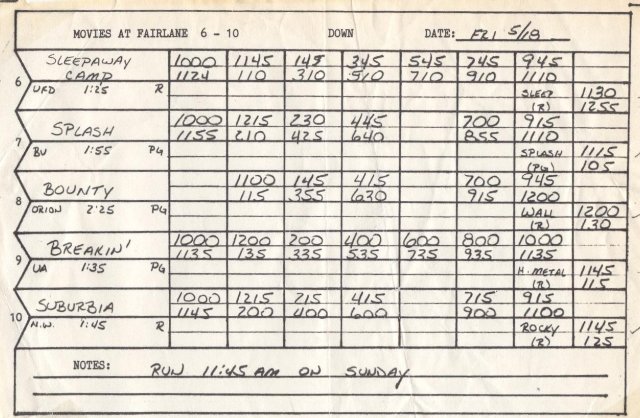 MOVIES AT FAIRLANE 6 - 10 DOWN DATE: FRI 5/18
SLEEPAWAY 1000 1145 145 345 545 745 945
6 CAMP 1124 110 310 510 710 910 1110
UFD 1:25 R SLEEP 1130
(R) 1255
SPLASH 1000 1215 230 445 700 915
7 1155 210 425 640 855 1110
BV 1:55 PG SPLASH 1115
(PG) 105
BOUNTY 1100 145 415 700 945
8 115 355 630 915 1200
ORION 2:25 PG WALL 1200
(R) 130
BREAKIN' 1000 1200 200 400 600 800 1000
9 1135 135 335 535 735 935 1135
UA 1:35 PG H. METAL 1145
(R) 115
SUBURBIA 1000 1215 215 415 715 915
10 1145 200 400 600 900 1100
N.W. 1:45 R ROCKY 1145
(R) 125
NOTES: RUN 11:45 AM ON SUNDAY